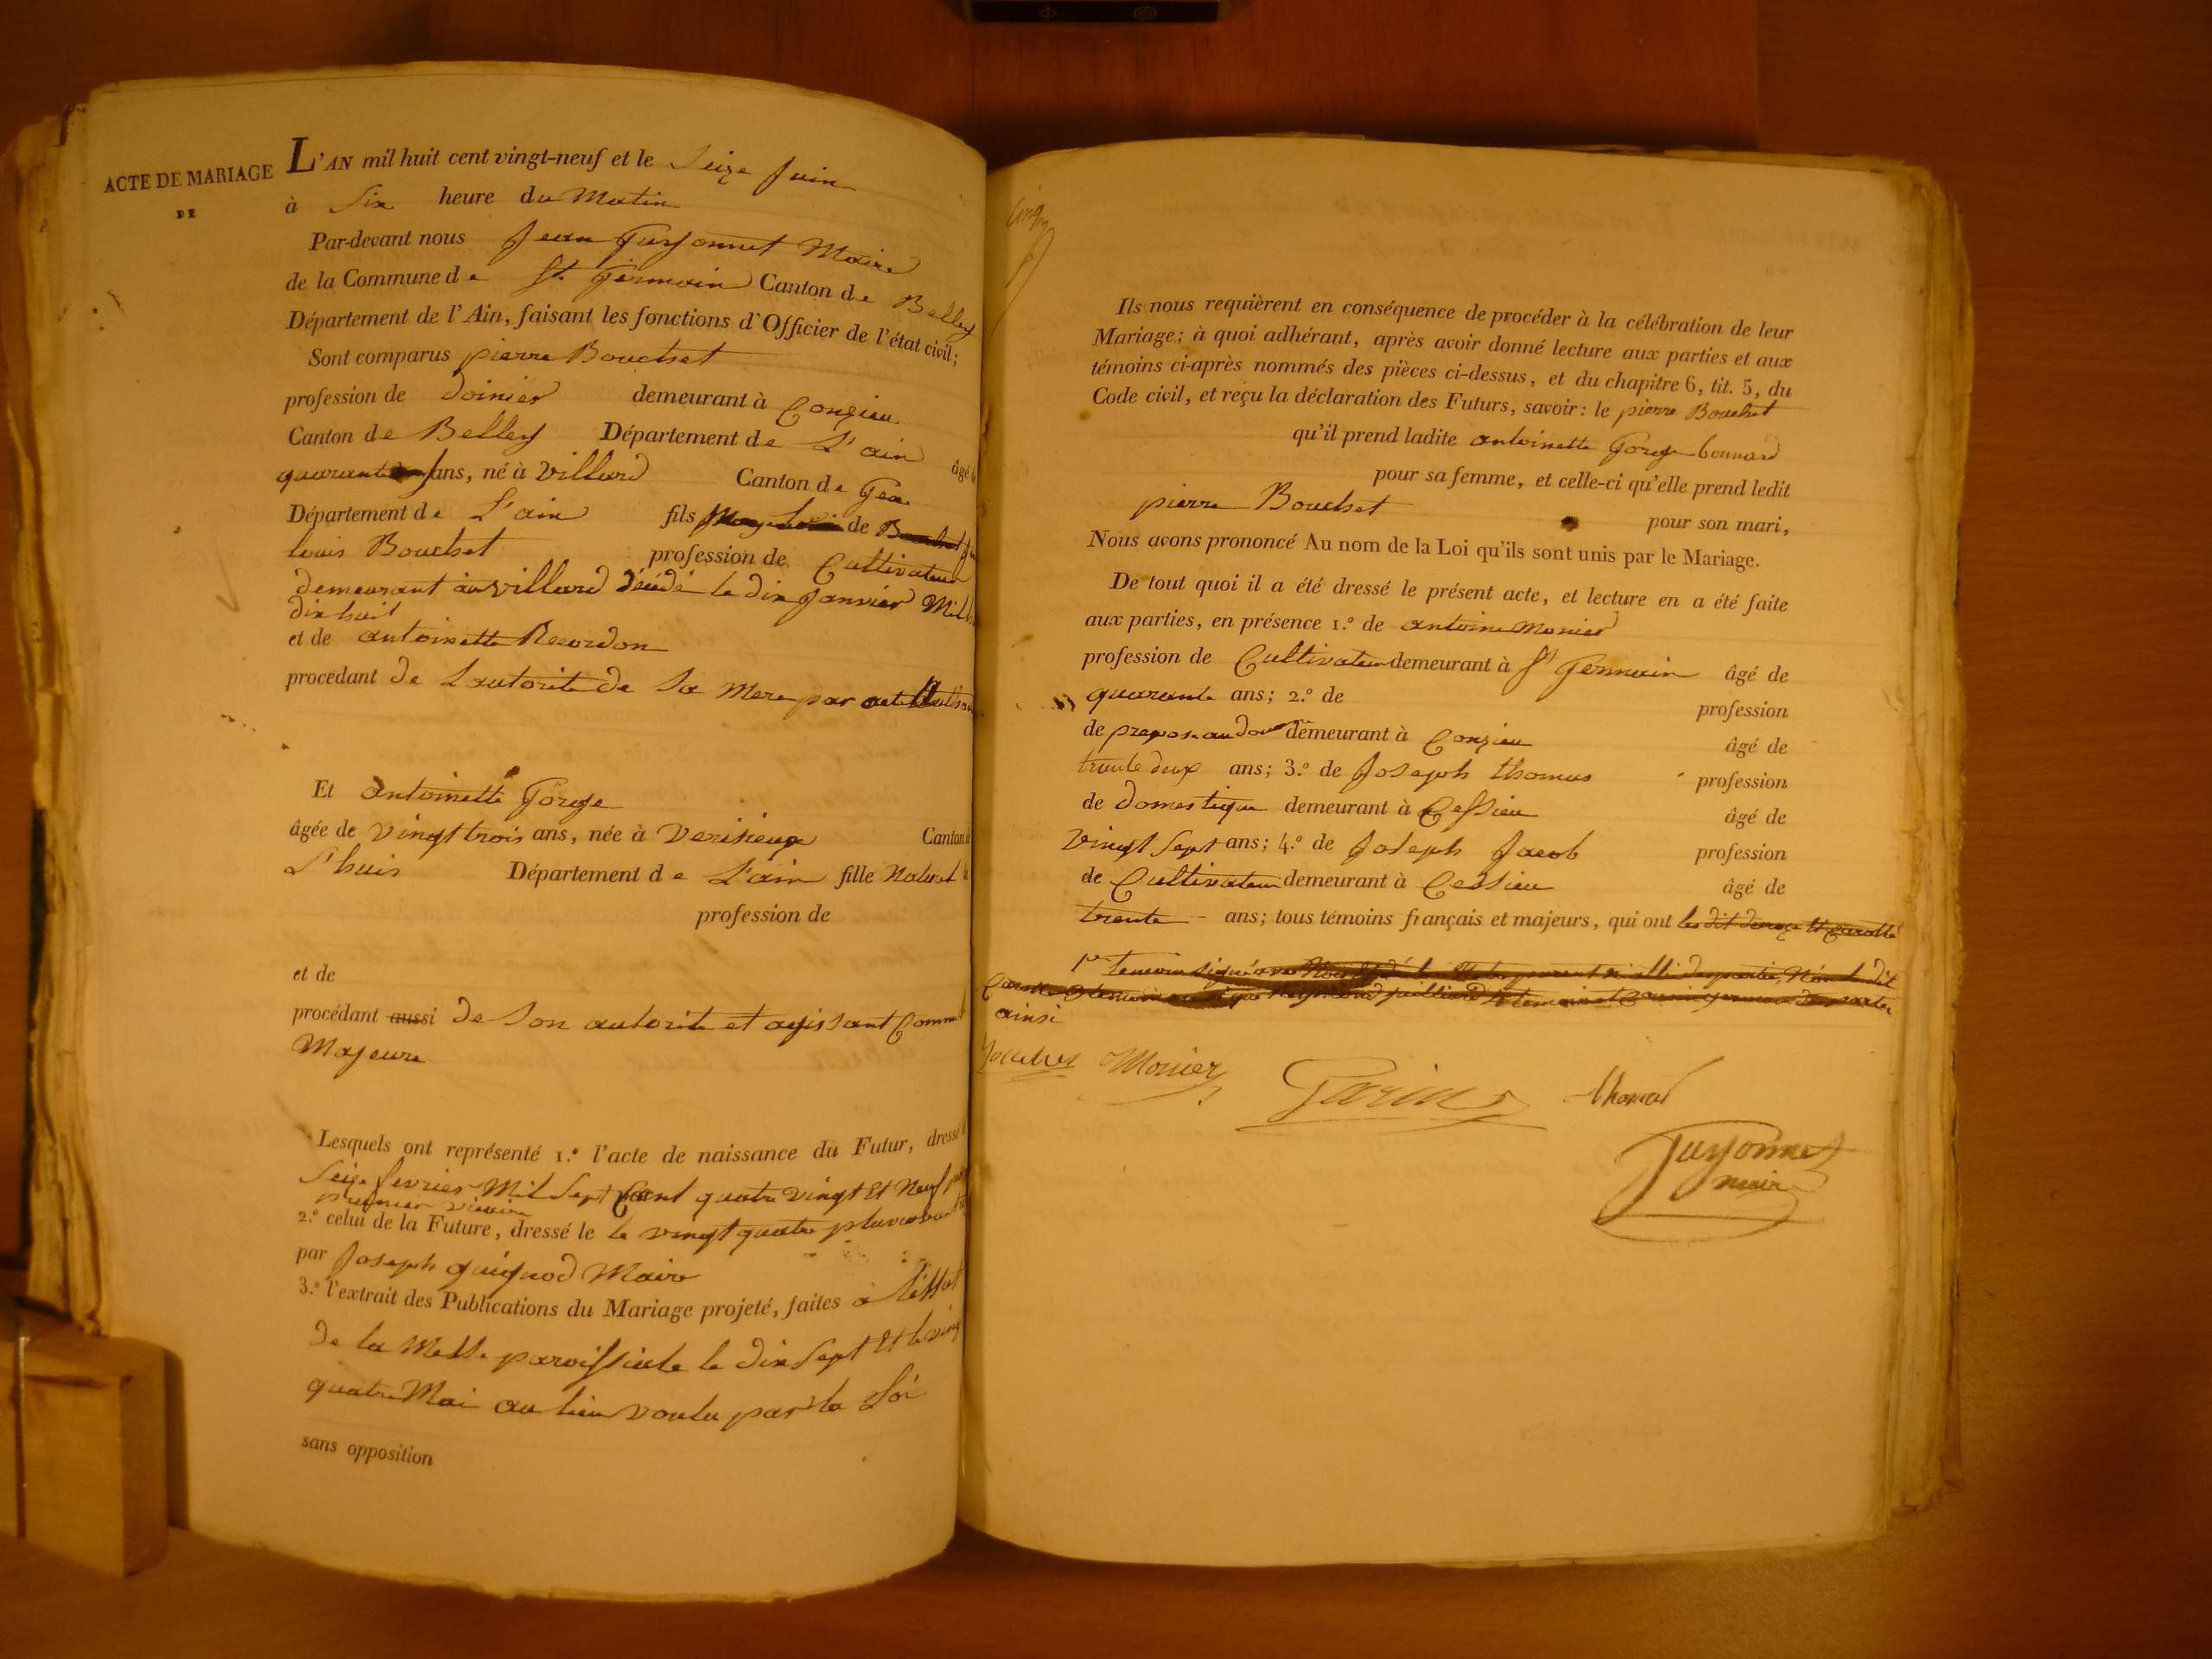 ACTE DE MARIAGE
DE
L'AN mil huit cent vingt-neuf et le Seize Juin
à Six heure du Matin
Par-devant nous Jean Guyonnet Maire
de la Commune de St. Germain Canton de Belley
Département de l'Ain, faisant les fonctions d'Officier de l'état civil;
Sont comparus pierre Bouchet
profession de demeurant à Conzieu
Canton de Belley Département de L'ain âgé
quarante ans, né à Villard Canton de Gex
Département de L'ain fils de
louis Bouchet profession de Cultivateur
demeurant au villard décédé le dix Janvier
dix huit
et de antoinette Recordon
procédant de Lautorité de Sa Mere par acte
Et antoinette Gorge
âgée de vingt trois ans, née à Verisieux Canton
L'huis Département de L'ain fille Naturel
profession de
et de
procédant aussi de Son autorité et agissant Comme
Majeure
Lesquels ont représenté 1.º l'acte de naissance du Futur, dressé
Seize fevrier Mil Sept Cent quatre vingt Et Neuf
premier vicaire
2.º celui de la Future, dressé le le vingt quatre pluviose
par Joseph guignod Maire
3.º l'extrait des Publications du Mariage projeté, faites a
de la Messe paroissiale le dix Sept Et le
quatre Mai au lieu voulu par la Loi
sans opposition
cinq
Ils nous requièrent en conséquence de procéder à la célébration de leur
Mariage; à quoi adhérant, après avoir donné lecture aux parties et aux
témoins ci-après nommés des pièces ci-dessus, et du chapitre 6, tit. 5, du
Code civil, et reçu la déclaration des Futurs, savoir: le pierre Bouchet
qu'il prend ladite antoinette Gorge
pour sa femme, et celle-ci qu'elle prend ledit
pierre Bouchet pour son mari,
Nous avons prononcé Au nom de la Loi qu'ils sont unis par le Mariage.
De tout quoi il a été dressé le présent acte, et lecture en a été faite
aux parties, en présence 1.º de antoine Monier
profession de Cultivateur demeurant à St Germain âgé de
quarante ans; 2.º de profession
de demeurant à Conzieu âgé de
trente deux ans; 3.º de Joseph thomas profession
de domestique demeurant à Cessieu âgé de
vingt Sept ans; 4.º de Joseph Jacob profession
de Cultivateur demeurant à Cessieu âgé de
trente ans; tous témoins français et majeurs, qui ont
ainsi
Monier
thomas
Guyonnet
maire